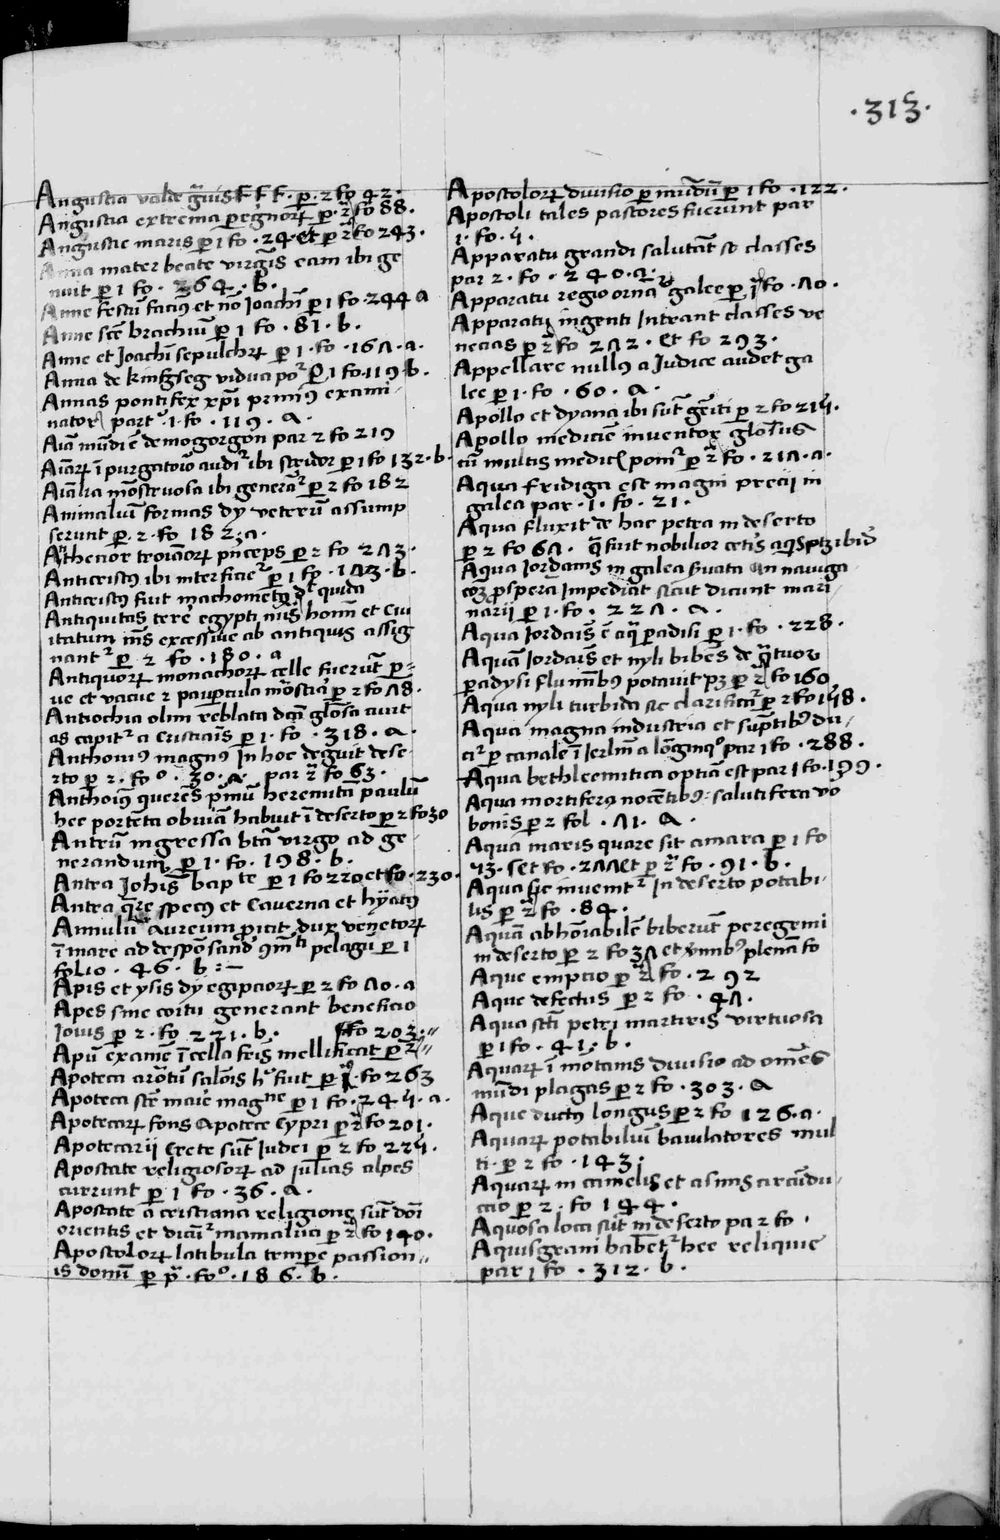 ·313·
Angustia valde gͣuis FFF· ꝑ· 2 fo 42·
Angustia extrema ꝑegrioꝝ ꝑ· 2 fo 88·
Angustie maris ꝑ 1 fo ·24· et ꝑ 2 fo 243·
Anna mater beate virgīs eam ibi ge
nuit ꝑ 1 fo· 264· b·
Anne festū et Joachī ꝑ 1 fo 244 a
Anne scē brachiū ꝑ 1 fo ·81· b·
Anne et Joachī sepulchꝝ ꝑ 1· fo ·167·a·
Anna de kinfgseg vidua 1 fo·119·b·
Annas pontifex xp̄i primꝰ exami-
nator part· 1· fo ·119· a·
Aīa mūdi ē demogorgon par 2 fo 219
Aīaꝝ ī purgatoīo audiʳ ibi stridor ꝑ 1 fo 132·b·
Aīalia mōstruosa ibi generāʳ ꝑ 2 fo 182
Animaliū formas dy veterū assump
serunt ꝑ· 2· fo 182·a·
Anthenor troianoꝝ pͥnceps ꝑ 2 fo 273·
Anticristꝰ ibi interficieʳ ꝑ 1 fo ·173·b·
Anticristꝰ fuit machometꝰ quida
Antiquitas terē egypti homī et ciu
itatum excessiue ab antiquis assig
nantʳ ꝑ 2 fo ·180· a
Antiquoꝝ monachoꝝ celle fuerūt ꝑ-
ue et vacue 2 pauꝑcula ꝑ 2 fo 78·
Antiochia olim reblata glōsa ciuit
as capitʳ a cristiaīs ꝑ 1· fo ·318· a·
Anthoniꝰ magnꝰ in hoc deguit dese-
rto ꝑ 2· foº ·30· a· par 2 fo 63·
Anthoiꝰ querēs pͥmū heremitā paulū
hec portēta obuiā habuit ī deserto ꝑ 2 fo 30
Antrū ingressa btā virgo ad ge-
nerandum ꝑ 1· fo· 198· b·
Antra Johīs bapᵗᵉ ꝑ 1 fo 220 et fo·230·
Antra qͣre specꝰ et cauerna et hyatꝰ
Annulū aureum proicit dux venetoꝝ
ī mare ad despōsandū pelagꝰ ꝑ 1
folio· 46· b :—
Apis et ysis dy egiptioꝝ ꝑ 2 fo 70· a
Apes sine coitu generant beneficio
Jouis ꝑ 2· fo 221· b· fo 203·
Apū examē ī cella frīs mellificat ꝑ 2
Apoteca arōtū salōis hͥ fuit ꝑ 1· fo 263
Apoteca scē marie magⁿᵉ ꝑ 1 fo·245·a·
Apotecaꝝ fons apotece Cypri ꝑ 2 fo 201·
Apotecarij Crete sūt Judei ꝑ 2 fo 225·
Apostate religiosoꝝ ad iulias alpes
currunt ꝑ 1 fo ·36· a·
Apostate a cristiana religione sūt dōi
orientis et dicūʳ mamaluci ꝑ 2 fo 140·
Apostoloꝝ latibula tempe passion-
is domī ꝑ pͣ· foº·186· b·
Apostoloꝝ diuisio ꝑ mūdū ꝑ 1 fo ·122·
Apostoli tales pastores fuerunt par
1· fo· 5·
Apparatu grandi salutāt se classes
par 2· fo· 240·a·
Apparatu regio ornāʳ galee ꝑ 1 fo ·70·
Apparatu ingenti intrant classes ve
necias ꝑ 2 fo 272· et fo 293·
Appellare nullus a iudice audet ga
lee ꝑ 1· fo ·60· a·
Apollo et dyana ibi sūt gēiti ꝑ 2 fo 215·
Apollo medicie inuentor glōsus
cū multis medicꝭ ponīʳ ꝑ 2 fo ·217·a·
Aqua fridiga est magni precij in
galea par· 1· fo· 21·
Aqua fluxit de hac petra in deserto
ꝑ 2 fo 67· q̄ fuit nobilior cetīs aqꝭ ibiꝰ
Aqua Jordanis in galea suata an nauiga-
coꝫ ꝓsperā impediat sicut dicunt mari
narij ꝑ 1· fo· 227· a·
Aqua Jordaīs ē aq̄ ꝑadisi ꝑ 1· fo ·228·
Aquā Jordaīs et nyli bibēs de qͣtuor
ꝑadysi flumibꝰ potauit pꝫ ꝑ 2 fo 160
Aqua nyli turbida sic clarificāʳ ꝑ 2 fo 158·
Aqua magna industria et sūptibꝰ du-
ciʳ ꝑ canale ī Jerlm̄ a lōginqº par 1 fo ·288·
Aqua bethleemitica optiā est par 1 fo·199·
Aqua mortiferꝰ nocētibꝰ: salutifera vo
bonis ꝑ 2 fol ·71· a·
Aqua maris quare sit amara ꝑ 1 fo
53· set fo ·277 et ꝑ 2 fo ·91· b·
Aqua sic inuenītʳ in deserto potabi-
lis ꝑ 2 fo ·84·
Aquā abhōrabilē biberūt peregrini
in deserto ꝑ 2 fo 37 et plenā fo
Aque emptio ꝑ 2 fo ·292
Aque defectus ꝑ 2 fo ·47·
Aqua scti petri martiris virtuosa
ꝑ 1 fo ·41· b·
Aquaꝝ ī motanis diuisio ad omēs
mūdi plagas ꝑ 2 fo ·303· a
Aque ductꝰ longus ꝑ 2 fo 126·a·
Aquaꝝ potabiliū baiulatores mul
ti· ꝑ 2 fo ·143·
Aquaꝝ in camelis et asinis circūdu-
ctio ꝑ 2· fo 144·
Aquosa loca sūt in deserto pa 2 fo·
Aquisgrani habētʳ hee reliquie
par 1 fo ·312· b·